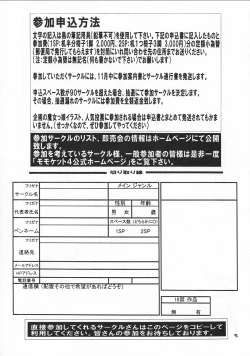 参加申込方法
文字の記入は黒の筆記用具(鉛筆不可)を使用して下さい。下記の申込書に記入したものと
参加費(1SP:机半分椅子1脚 2,000円、2SP:机1つ椅子3脚 3,000円)分の定額小為替
(郵便局で発行してもらえます)を封筒にいれ問い合わせ先の住所までお送りください。
(注:定額小為替は無記名(何も書かない)で下さい)でお願いします)
参加していただくサークルには、11月中に参加案内書とサークル通行書を発送します。
申込スペース数が90サークルを超えた場合、抽選にて参加サークルを決定します。
その場合、抽選漏れのサークルには参加費を全額返金致します。
参加サークルのリスト、即売会の情報はホームページにて公開
致します。
参加を考えているサークル様、一般参加者の皆様は是非一度
「モモケット4公式ホームページ」をご覧下さい。
切り取り線
フリガナ
サークル名
メインジャンル
フリガナ
代表者氏名
性別
年齢
男 女
歳
フリガナ
ペンネーム
1SP 2SP
フリガナ
連絡先
メールアドレス
HPアドレス
電話番号
通信欄(配置その他で希望があればどうぞ)
18禁 作品
無 有
直接参加してくれるサークルさんはこのページをコピーして
利用してください。皆さんの参加をお待ちしております。